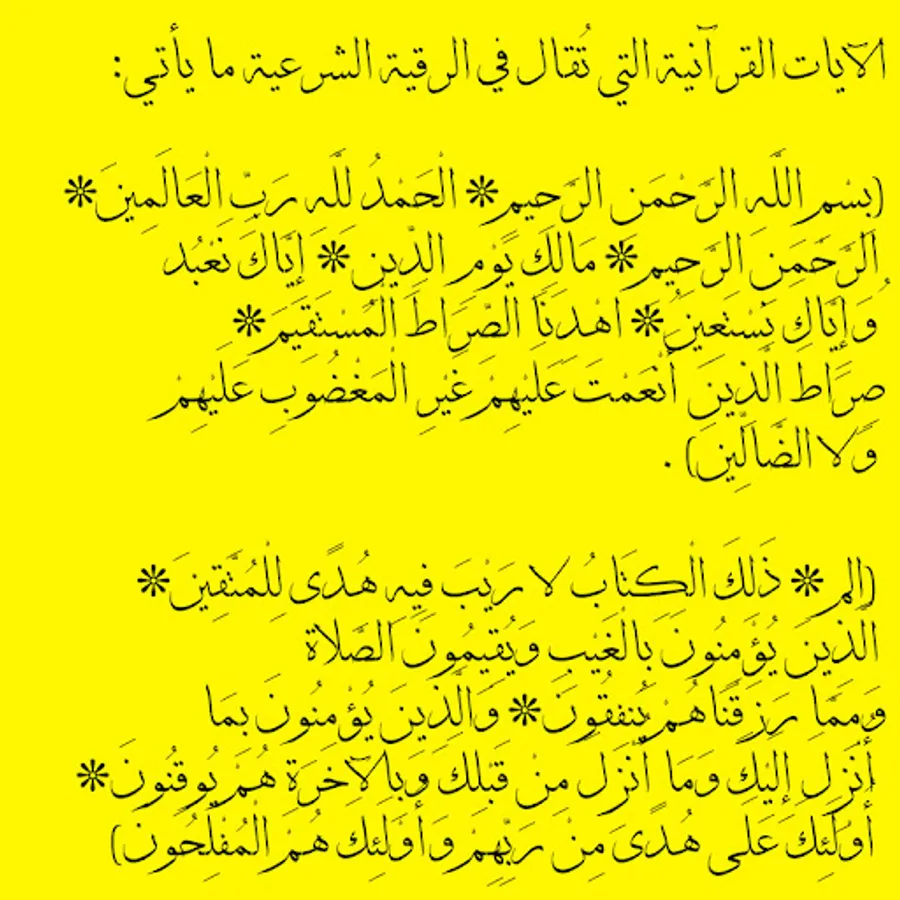 الآيات القرآنية التي تُقال في الرقية الشرعية ما يأتي:
(بِسْمِ اللَّهِ الرَّحْمَنِ الرَّحِيمِ* الْحَمْدُ لِلَّهِ رَبِّ الْعَالَمِينَ*
الرَّحْمَنِ الرَّحِيمِ* مَالِكِ يَوْمِ الدِّينِ* إِيَّاكَ نَعْبُدُ
وَإِيَّاكَ نَسْتَعِينُ* اهْدِنَا الصِّرَاطَ الْمُسْتَقِيمَ*
صِرَاطَ الَّذِينَ أَنْعَمْتَ عَلَيْهِمْ غَيْرِ الْمَغْضُوبِ عَلَيْهِمْ
وَلَا الضَّالِّينَ) .
(الم* ذَلِكَ الْكِتَابُ لَا رَيْبَ فِيهِ هُدًى لِلْمُتَّقِينَ*
الَّذِينَ يُؤْمِنُونَ بِالْغَيْبِ وَيُقِيمُونَ الصَّلَاةَ
وَمِمَّا رَزَقْنَاهُمْ يُنفِقُونَ* وَالَّذِينَ يُؤْمِنُونَ بِمَا
أُنزِلَ إِلَيْكَ وَمَا أُنزِلَ مِنْ قَبْلِكَ وَبِالْآخِرَةِ هُمْ يُوقِنُونَ*
أُوْلَئِكَ عَلَى هُدًى مِنْ رَبِّهِمْ وَأُوْلَئِكَ هُمُ الْمُفْلِحُونَ)